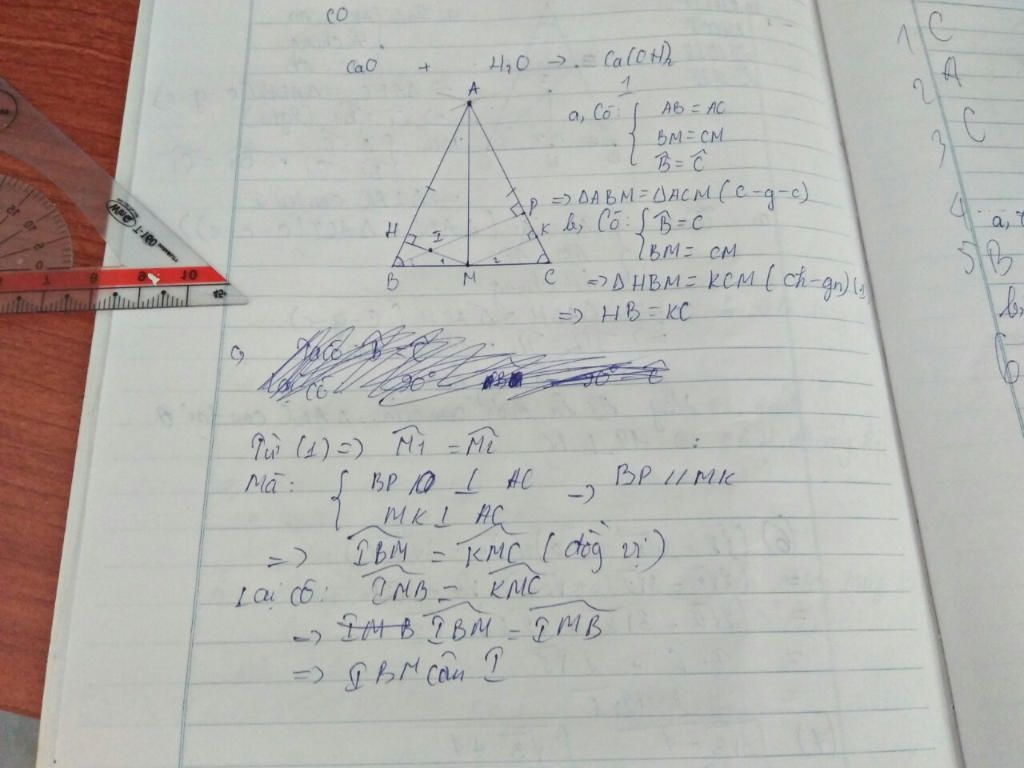 CO
CaO + H2O → Ca(OH)2
1
A
a, Có: { AB = AC
BM = CM
B̂ = Ĉ
=> ΔABM = ΔACM (c-g-c)
P
H I K
b, Có: { B̂ = C
BM = CM
B 1 M 2 C
=> ΔHBM = KCM (ch-gn) (1)
=> HB = KC
c,
Từ (1) => M̂1 = M̂2
Mà: { BP ⊥ AC
MK ⊥ AC
-> BP // MK
=> IBM = KMC (đồg vị)
Lại có: IMB = KMC
-> IMB IBM = IMB
=> IBM cân I
1 C
2 A
3 C
4
a,
5 B
b,
6
7 8 9 10